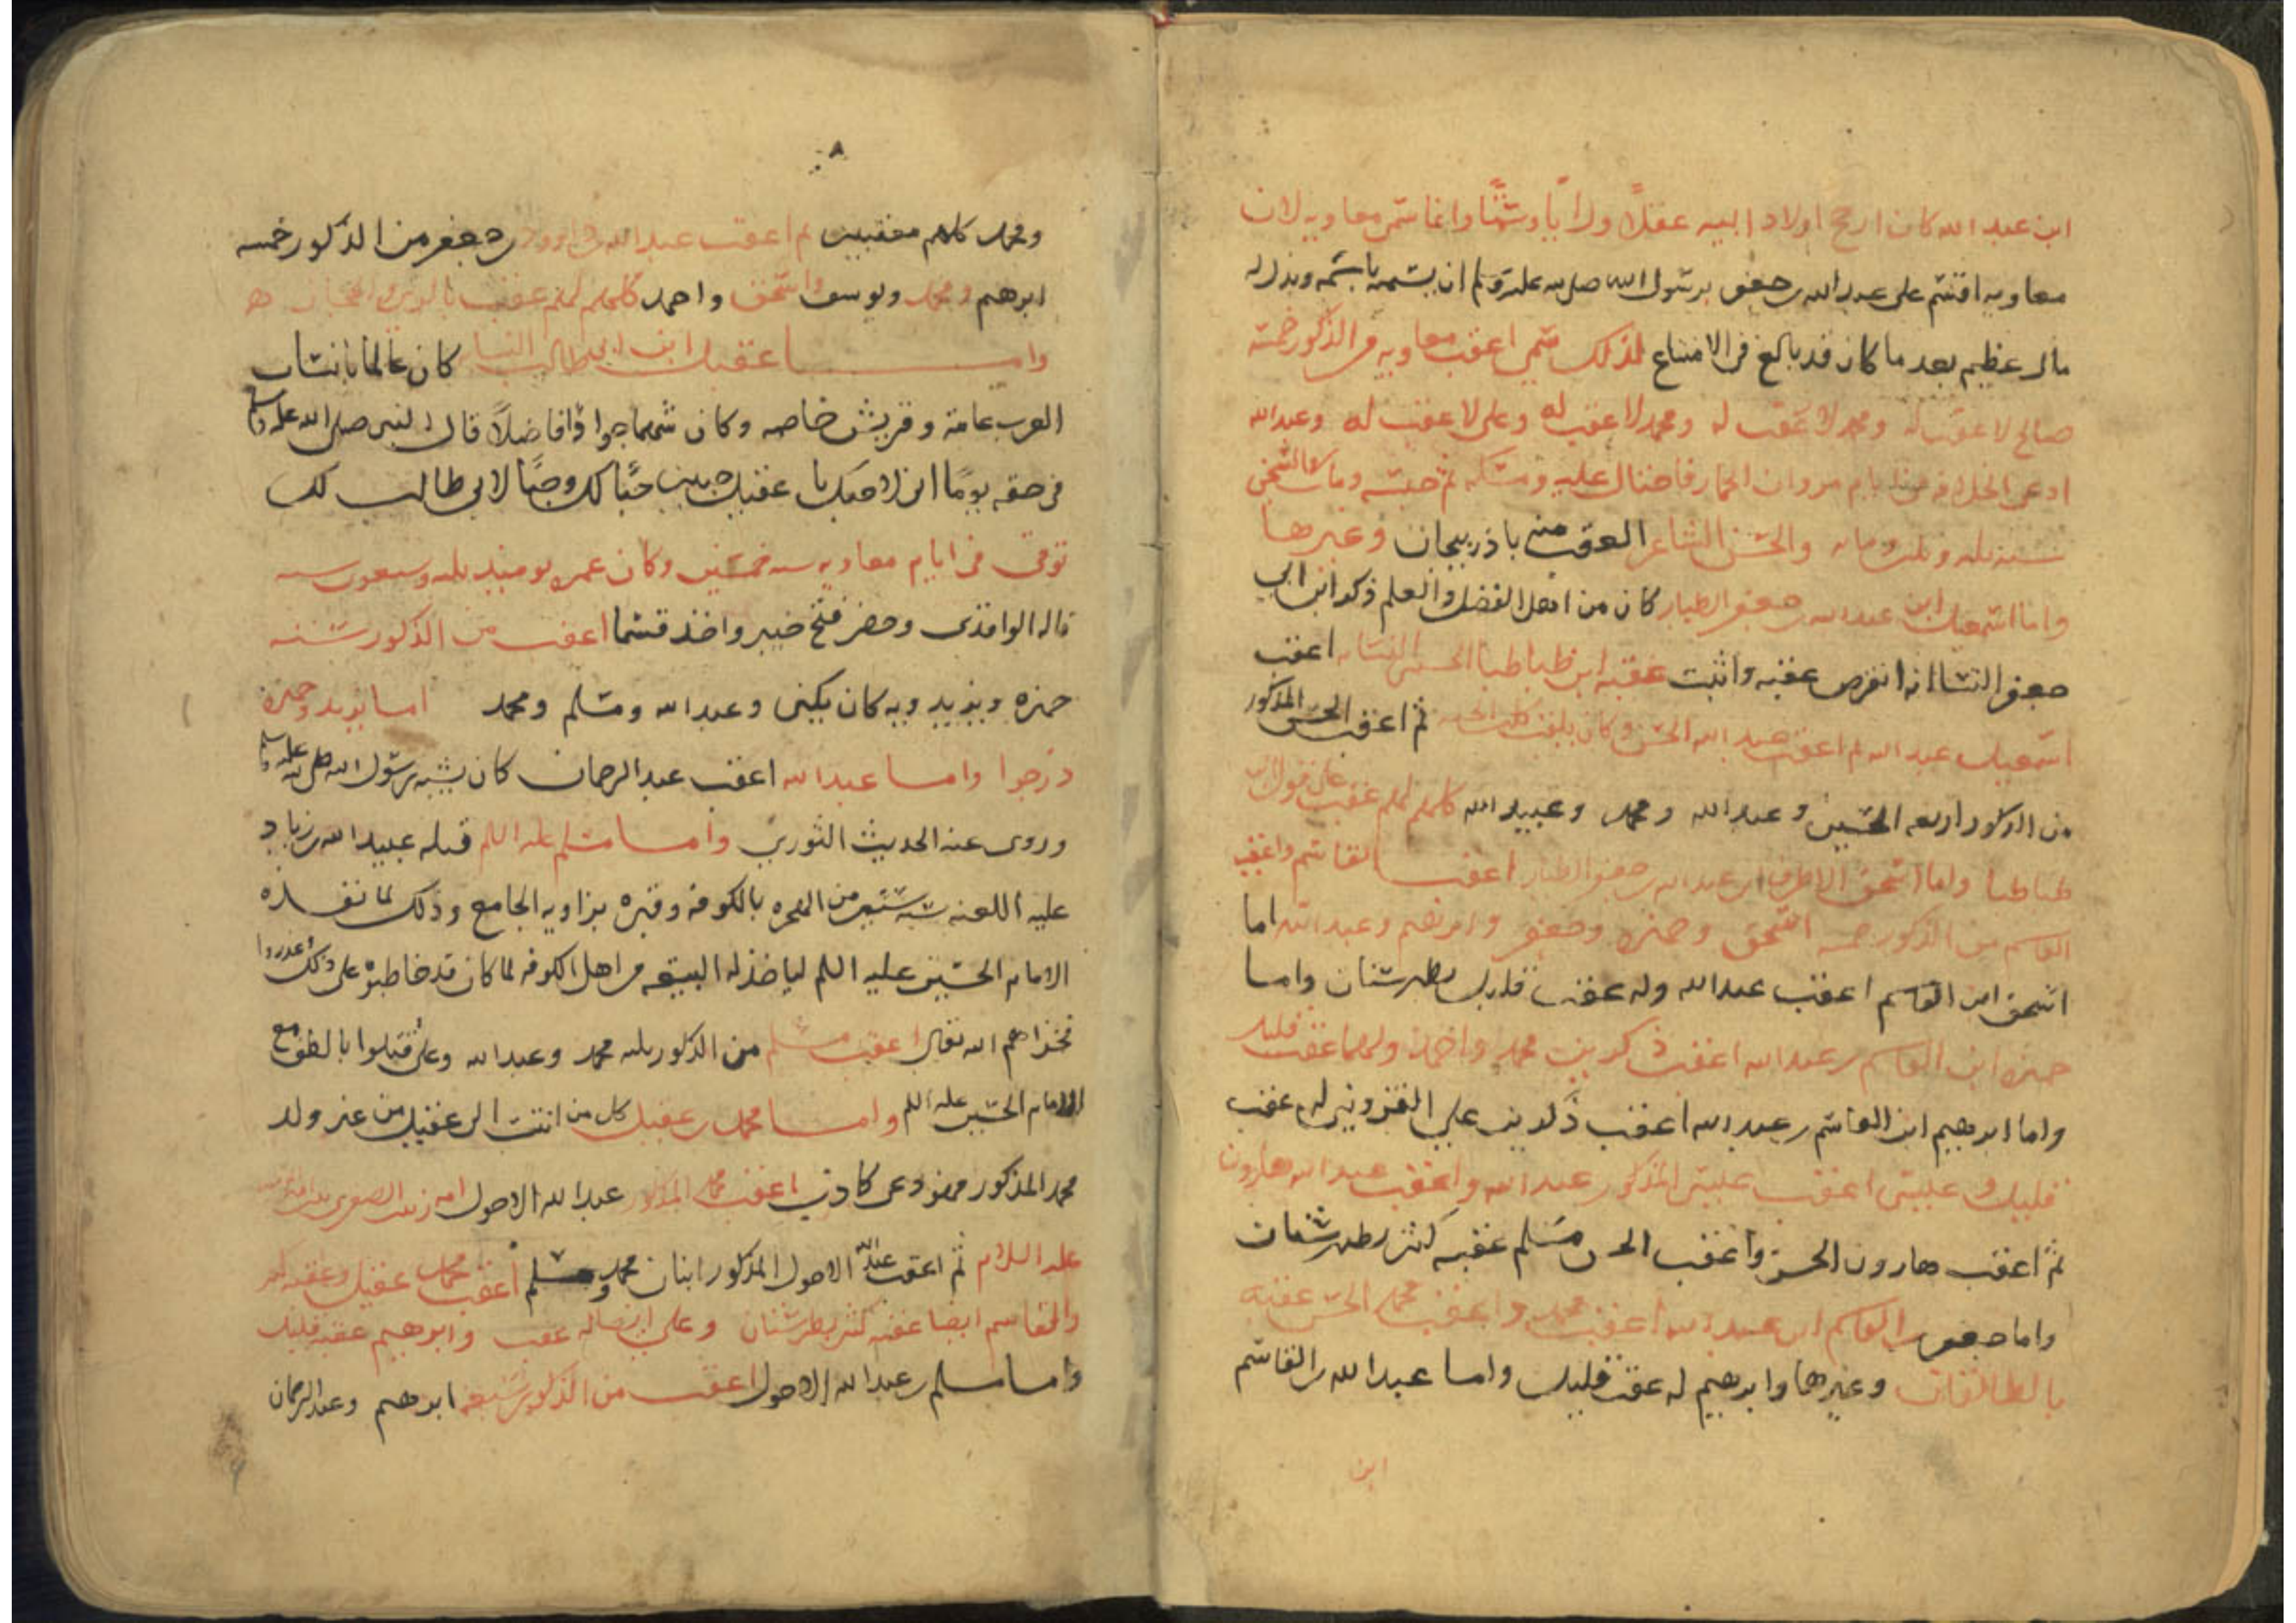 ابن عبد الله كان ارجح اولاد ابيه عقلا وانما سمى معاويه لان
معاويه اقسم على عبد الله بن جعفر برسول الله صلى الله عليه وسلم ان يسميه باسمه وبذل له
مال عظيم بعد ما كان قد بالغ فى الامتناع لذلك سمى اعقب معاويه من الذكور خمسة
صالح لا عقب له ومحمد لا عقب له ومحمد لا عقب له وعلى لا عقب له وعبد الله
ادعى الخلافه فى ايام مروان الحمار فاحتال عليه ومسكه ثم حبسه ومات فى السجن
سنه وثلثين ومايه والحسن الشاعر العقب منه باذربيجان وغيرها
واما اسمعيل ابن عبد الله بن جعفر الطيار كان من اهل الفضل والعلم ذكر ابن ابى
جعفر النسابه انه انقرض عقبه واثبت عقبه ابن طباطبا الحسنى النسابه اعقب
اسمعيل عبد الله ثم اعقب عبد الله الحسن وكان يلقب ثم اعقب الحسن المذكور
من الذكور اربعه الحسين وعبد الله ومحمد وعبيد الله كلهم لهم عقب على قول ابن
طباطبا واما اسحق الاطرف ابن عبد الله بن جعفر الطيار اعقب القاسم واعقب
القاسم من الذكور خمسه اسحق وحمزه وجعفر وابرهيم وعبد الله اما
اسحق ابن القاسم اعقب عبد الله وله عقب قليل بطبرستان واما
حمزه ابن القاسم بن عبد الله اعقب ذكرين محمد واحمد ولهما عقب قليل
واما ابرهيم ابن القاسم بن عبد الله اعقب ذكرين على القزوينى له عقب
قليل و عيسى اعقب عيسى المذكور عبد الله واعقب عبد الله هارون
ثم اعقب هارون الحسن واعقب الحسن مسلم عقبه كثر بطبرستان
واما جعفر بن القاسم ابن عبد الله اعقب محمد واعقب محمد الحسن عقبه
بالطالقان وغيرها وابرهيم له عقب قليل واما عبد الله بن القاسم
ابن
٨
ومحمد كلهم معقبين ثم اعقب عبد الله بن جعفر من الذكور خمسه
ابرهيم ومحمد ويوسف واسحق واحمد كلهم لهم عقب
واما عقيل ابن ابى طالب كان عالما بانساب
العرب عامة وقريش خاصه وكان فاضلا قال النبى صلى الله عليه وسلم
فى حقه يوما انى لاحبك يا عقيل حبين حبا لك وحبا لابى طالب لك
توفى فى ايام معاويه سنه خمسين وكان عمره يوميذ ثلثه وسبعون سنه
قاله الواقدى وحضر فتح خيبر واخذ قسما اعقب من الذكور سته
حمزه ويزيد وبه كان يكنى وعبد الله ومسلم ومحمد اما يزيد وحمزه
درجوا واما عبد الله اعقب عبد الرحمان كان يشبه برسول الله صلى الله عليه وسلم
وروى عنه الحديث الثورى واما مسلم عليه السلم قتله عبيد الله بن زياد
عليه اللعنه سنه ستين من الهجره بالكوفه وقبره بزاويه الجامع وذلك لما نفذه
الامام الحسين عليه السلم لياخذ له البيعه من اهل الكوفه لما كان قد خاطبوه على ذلك وغدروا
فجزاهم الله تعالى اعقب مسلم من الذكور ثلثه محمد وعبد الله وعلى قتلوا بالطف مع
الامام الحسين عليه السلم واما محمد بن عقيل كل من انتسب الى عقيل من غير ولد
محمد المذكور فهو دعى كاذب اعقب محمد المذكور عبد الله الاحول امه زينب الصغرى
عليه السلام ثم اعقب عبد الله الاحول المذكور ابنان محمد ومسلم اعقب محمد عقيل وعقبه
والقاسم ايضا عقبه كثر بطبرستان وعلى ايضا له عقب وابرهيم عقبه قليل
واما مسلم بن عبد الله الاحول اعقب من الذكور سبعه ابرهيم وعبد الرحمان